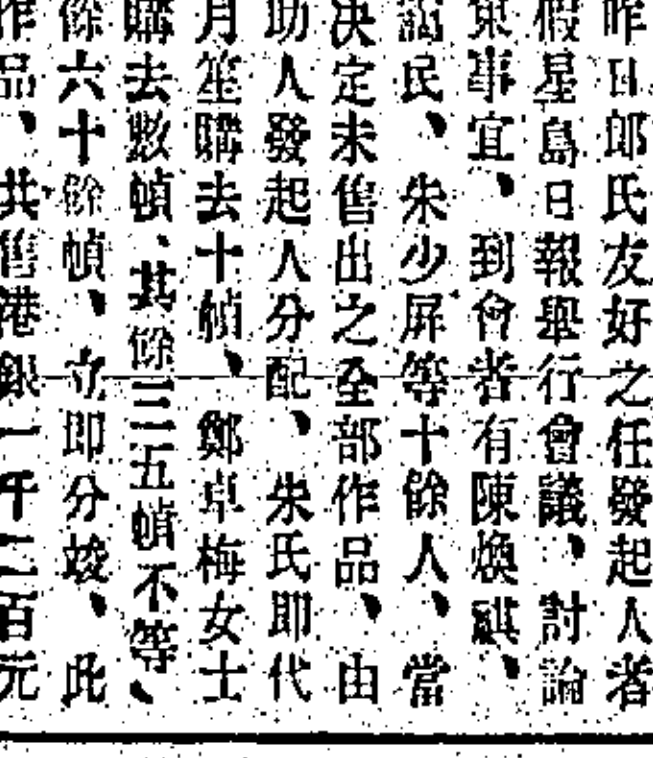 昨日郎氏友好之任發起人者
假星島日報舉行會議、討論
事宜、到會者有陳煥祺、
民、朱少屏等十餘人、當
決定未售出之全部作品、由
助人發起人分配、朱氏即代
月笙購去十幀、鄭卓梅女士
購去數幀、其餘三五幀不等、
餘六十餘幀、立即分竣、此
作品、共售港銀一千二百元